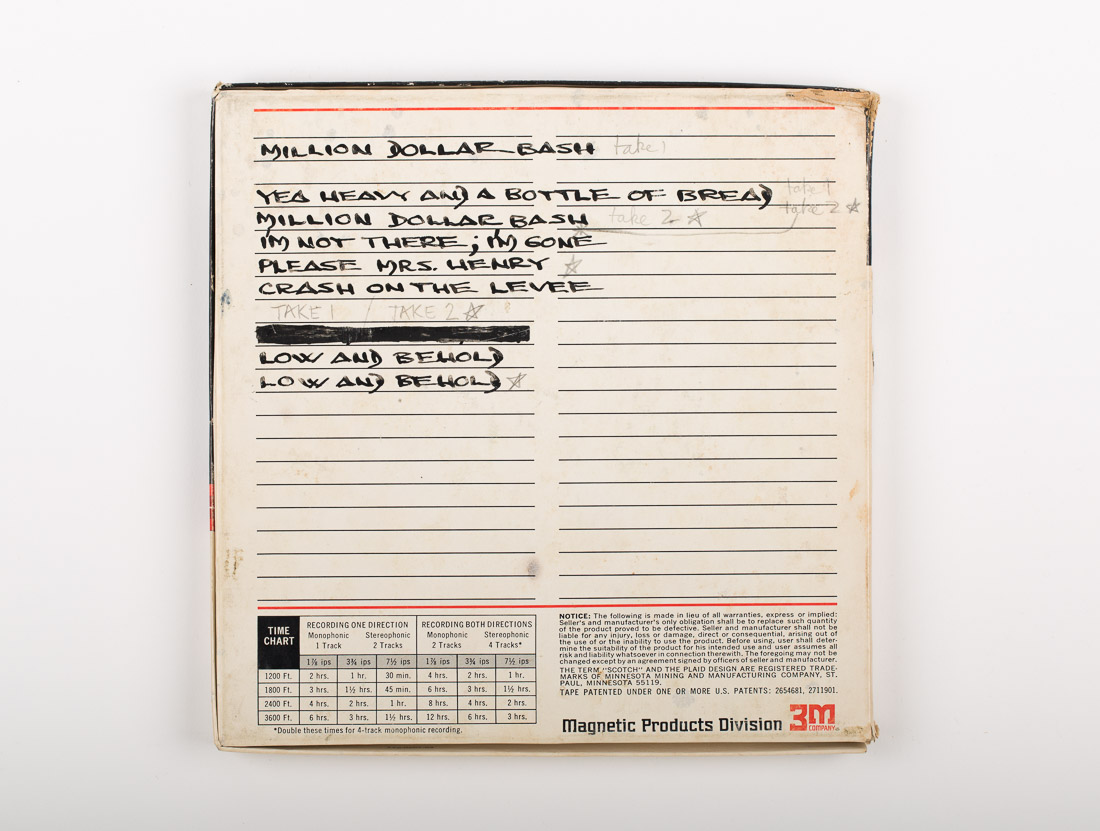 MILLION DOLLAR BASH take 1
YEA HEAVY AND A BOTTLE OF BREAD take 1
take 2 ☆
MILLION DOLLAR BASH take 2 ☆
I'M NOT THERE; I'M GONE
PLEASE MRS. HENRY ☆
CRASH ON THE LEVEE
TAKE 1 / TAKE 2 ☆
LOW AND BEHOLD
LOW AND BEHOLD ☆
TIME CHART
RECORDING ONE DIRECTION RECORDING BOTH DIRECTIONS
Monophonic Stereophonic Monophonic Stereophonic
1 Track 2 Tracks 2 Tracks 4 Tracks*
1⅞ ips 3¾ ips 7½ ips 1⅞ ips 3¾ ips 7½ ips
1200 Ft. 2 hrs. 1 hr. 30 min. 4 hrs. 2 hrs. 1 hr.
1800 Ft. 3 hrs. 1½ hrs. 45 min. 6 hrs. 3 hrs. 1½ hrs.
2400 Ft. 4 hrs. 2 hrs. 1 hr. 8 hrs. 4 hrs. 2 hrs.
3600 Ft. 6 hrs. 3 hrs. 1½ hrs. 12 hrs. 6 hrs. 3 hrs.
*Double these times for 4-track monophonic recording.
NOTICE: The following is made in lieu of all warranties, express or implied:
Seller's and manufacturer's only obligation shall be to replace such quantity
of the product proved to be defective. Seller and manufacturer shall not be
liable for any injury, loss or damage, direct or consequential, arising out of
the use of or the inability to use the product. Before using, user shall deter-
mine the suitability of the product for his intended use and user assumes all
risk and liability whatsoever in connection therewith. The foregoing may not be
changed except by an agreement signed by officers of seller and manufacturer.
THE TERM "SCOTCH" AND THE PLAID DESIGN ARE REGISTERED TRADE-
MARKS OF MINNESOTA MINING AND MANUFACTURING COMPANY, ST.
PAUL, MINNESOTA 55119.
TAPE PATENTED UNDER ONE OR MORE U.S. PATENTS: 2654681, 2711901.
Magnetic Products Division 3M COMPANY